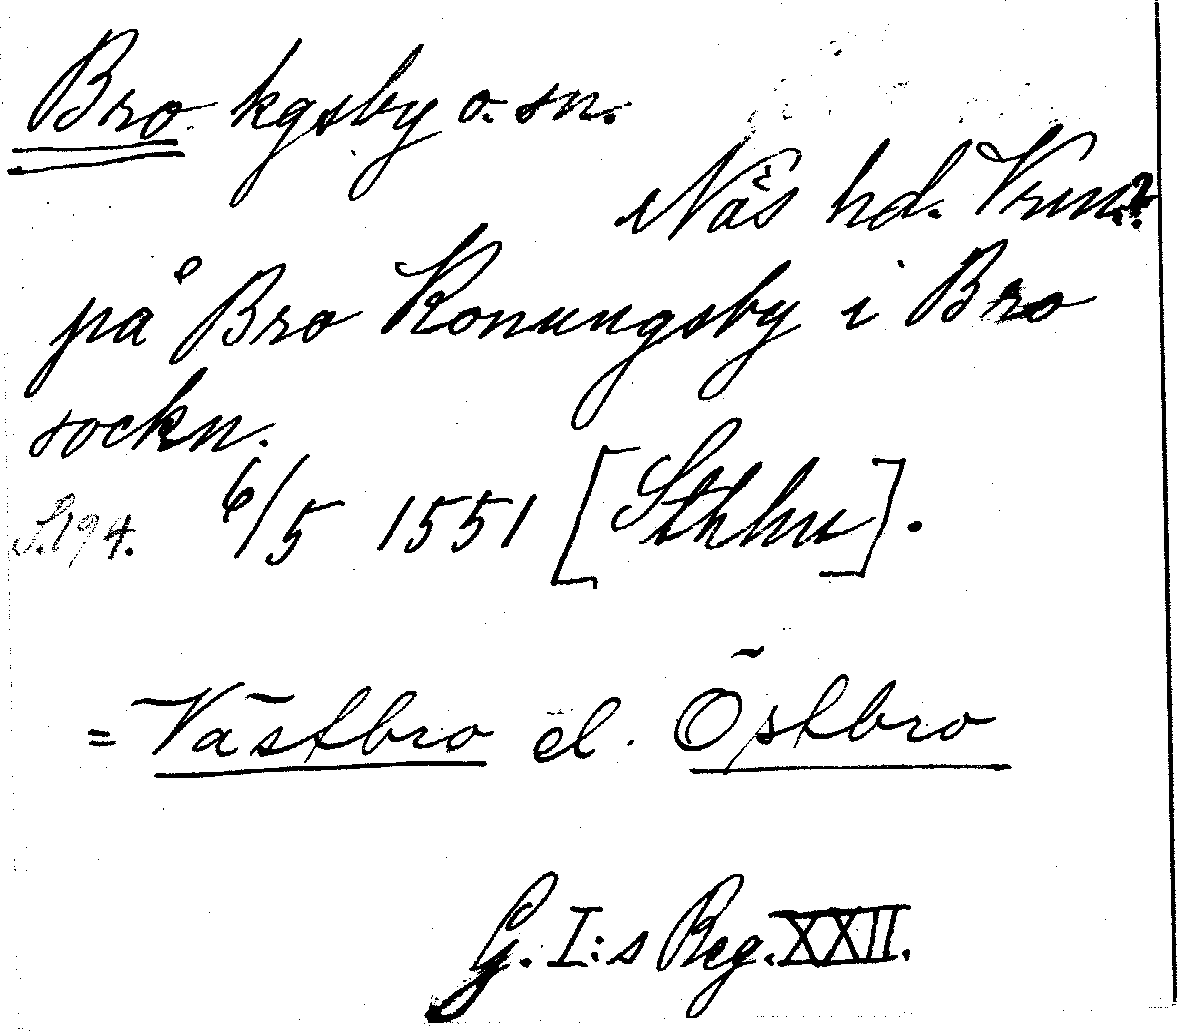 Bro kgsby o. sn.
Näs hd. Vrm.
på Bro Konungsby i Bro
sockn.
S. 194. 6/5 1551 [Sthlm].
= Västbro el. Östbro
G. I:s Reg. XXII.